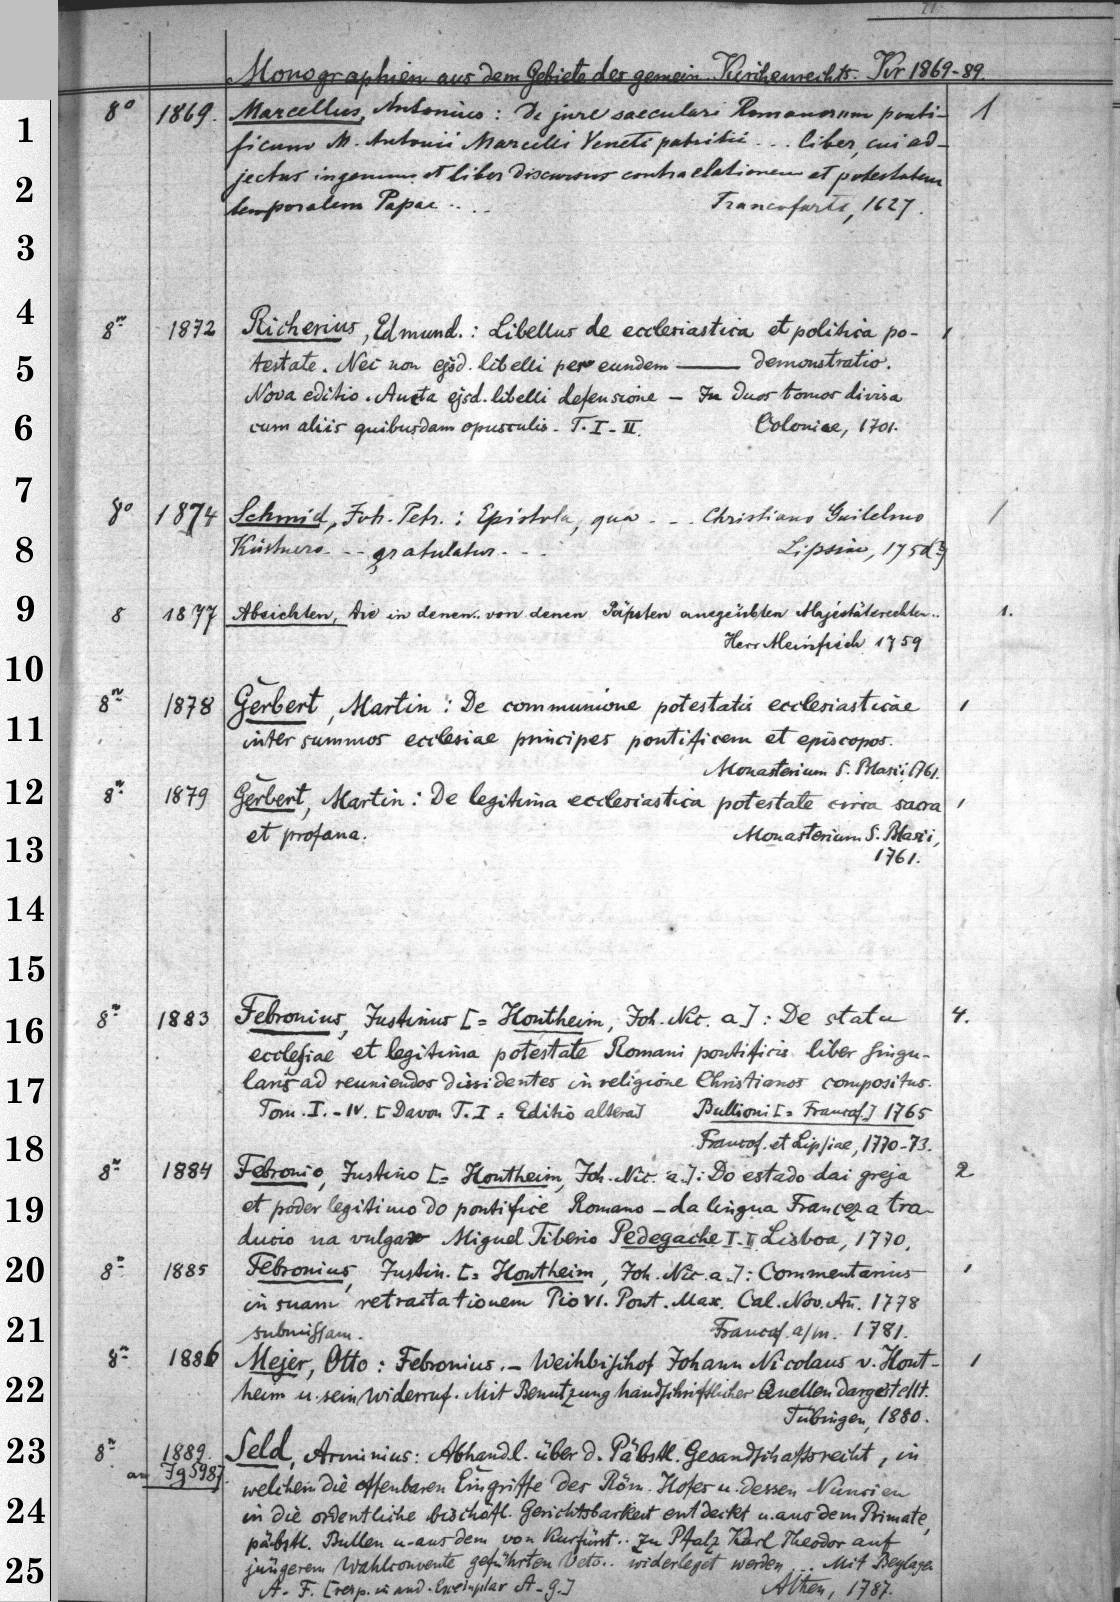 Monographien aus dem Gebiete des gemein. Kirchenrechts. Kr 1869-89.
8° 1869. Marcellus, Antonius: De jure saeculari Romanorum ponti- 1
1
ficum M. Antonii Marcelli Veneti patritii ... liber, cui ad-
jectus ingenuus et liber discursus contra elationem et potestatem
2
temporalem Papae .... Francofurti, 1627.
3
4
8° 1872 Richerius, Edmund.: Libellus de ecclesiastica et politica po- 1
5
testate. Nec non ejsd. libelli per eundem — demonstratio.
Nova editio. Aucta ejsd. libelli defensione — In duos tomos divisa
6
cum aliis quibusdam opusculis. T. I-II. Coloniae, 1701.
7
8° 1874 Schmid, Joh. Petr.: Epistola, qua ... Christiano Guilelmo 1
8
Küstnero ... gratulatur ... Lipsiae,
9
8 1877 Absichten, Die in denen .. von denen Päpsten ausgeübten Majestätsrechten .. 1.
1759
10
8° 1878 Gerbert, Martin: De communione potestatis ecclesiasticae 1
11
inter summos ecclesiae principes pontificem et episcopos.
Monasterium S. Blasii, 1761.
12
8° 1879 Gerbert, Martin: De legitima ecclesiastica potestate circa sacra 1
et profana. Monasterium S. Blasii,
13
1761.
14
15
8° 1883 Febronius, Justinus [= Hontheim, Joh. Nic. a]: De statu 4.
16
ecclesiae et legitima potestate Romani pontificis liber singu-
laris ad reuniendos dissidentes in religione Christianos compositus.
17
Tom. I.-IV. [Davon T. I = Editio altera] Bullioni [= Francof.] 1765
Francof. et Lipsiae, 1770-73.
18
8° 1884 Febronio, Justino [= Hontheim, Joh. Nic. a.]: Do estado da igreja 2
19
et poder legitimo do pontifice Romano — da lingua Franceza tra-
ducio na vulgar Miguel Tiberio Pedegache I-II Lisboa, 1770.
20
8° 1885 Febronius, Justin. [= Hontheim, Joh. Nic. a.]: Commentarius 1
in suam retractationem Pio VI. Pont. Max. Cal. Nov. An. 1778
21
submissam. Francof. a/m. 1781.
8° 1886 Mejer, Otto: Febronius. — Weihbischof Johann Nicolaus v. Hont- 1
22
heim u. sein Widerruf. Mit Benutzung handschriftlicher Quellen dargestellt.
Tübingen, 1880.
23
8° 1889. Seld, Arminius: Abhandl. über d. Päbstl. Gesandschaftsrecht, in
an Jg 5987. welchem die offenbaren Eingriffe des Röm. Hofes u. dessen Nunzien
24
in die ordentliche bischöfl. Gerichtsbarkeit entdeckt u. aus dem Primate,
päbstl. Bullen u. aus dem von Kurfürst .. zu Pfalz Karl Theodor auf
25
jüngerem Wahlconvente geführten Veto .. widerleget werden ... Mit Beylagen
A-F. [resp. in and. Exemplar A-G.] Athen, 1787.